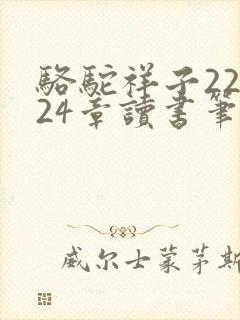 駱駝祥子22
24章讀書筆
威尔士蒙茅斯